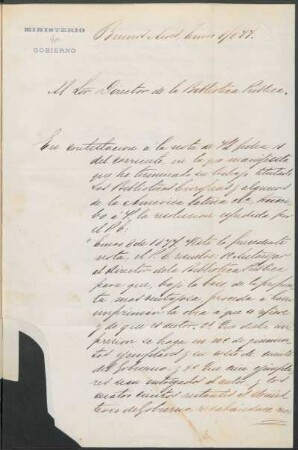 MINISTERIO
DE
GOBIERNO
Buenos Aires, Enero 1877.
Al Sor Director de la Biblioteca Publica.
En contestacion a la nota de Vd fecha
del corriente, en la que manifiesta
que ha terminado su trabajo titulado
Las Bibliotecas Europeas y algunas
de la America Latina
bo á la resolucion
el P. E.
Enero 8 de 1877. Vista la precedente
nota, el P. E. resuelve: 1º Autorizar
al director de la Biblioteca Publica
para que, bajo la base de la propuesta
mas ventajosa, proceda a hacer
imprimir la obra a que se refiere
y de que es autor. 2º Que dicha im
presion se haga en no de
ejemplares y
del Gobierno y 3º Que cien ejempla
res sean entregados al autor y los
cuatro cientos restantes al Minis
terio de Gobierno